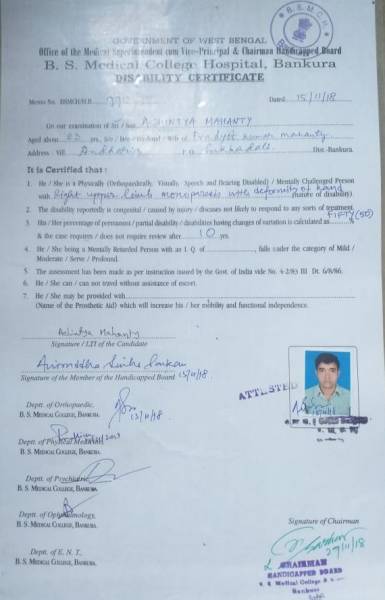 B.S.M.C.H.
GOVERNMENT OF WEST BENGAL
Office of the Medical Superintendent cum Vice-Principal & Chairman Handicapped Board
B. S. Medical College Hospital, Bankura
DISABILITY CERTIFICATE
Memo No. BSMCH/H.B. Dated 15/11/18
On our examination of Sri / Smt. Mahanty
Aged about yrs.
Address : Vill Dist.-Bankura.
It is Certified that :
1. He / She is a Physically (Orthopaedically, Visually, Speech and Hearing Disabled) / Mentally Challenged Person
with Right upper limb monoparesis with deformity of hand (nature of disability).
2. The disability reportedly is congenital / caused by injury / diseases not likely to respond to any sorts of treatment.
FIFTY (50)
3. His / Her percentage of permanent / partial disability / disabilities having changes of variation is calculated as %
& the case requires / does not require review after 10 yrs.
4. He / She being a Mentally Retarded Person with an I. Q. of , falls under the category of Mild /
Moderate / Serve / Profound.
5. The assessment has been made as per instruction issued by the Govt. of India vide No. 4-2/83 III Dt. 6/8/86.
6. He / She can / can not travel without assistance of escort.
7. He / She may be provided with
(Name of the Prosthetic Aid) which will increase his / her mobility and functional independence.
Achintya Mahanty
Signature / LTI of the Candidate
Signature of the Member of the Handicapped Board 15/11/18
ATTESTED
Deptt. of Orthopaedic,
B. S. MEDICAL COLLEGE, BANKURA. 15/11/18
Deptt. of Physical Medicine,
B. S. MEDICAL COLLEGE, BANKURA.
Deptt. of Psychiatric,
B. S. MEDICAL COLLEGE, BANKURA.
Deptt. of Ophthalmology,
B. S. MEDICAL COLLEGE, BANKURA.
Signature of Chairman
29/11/18
Deptt. of E. N. T.,
B. S. MEDICAL COLLEGE, BANKURA.
CHAIRMAN
HANDICAPPED BOARD
Medical College &
Bankura